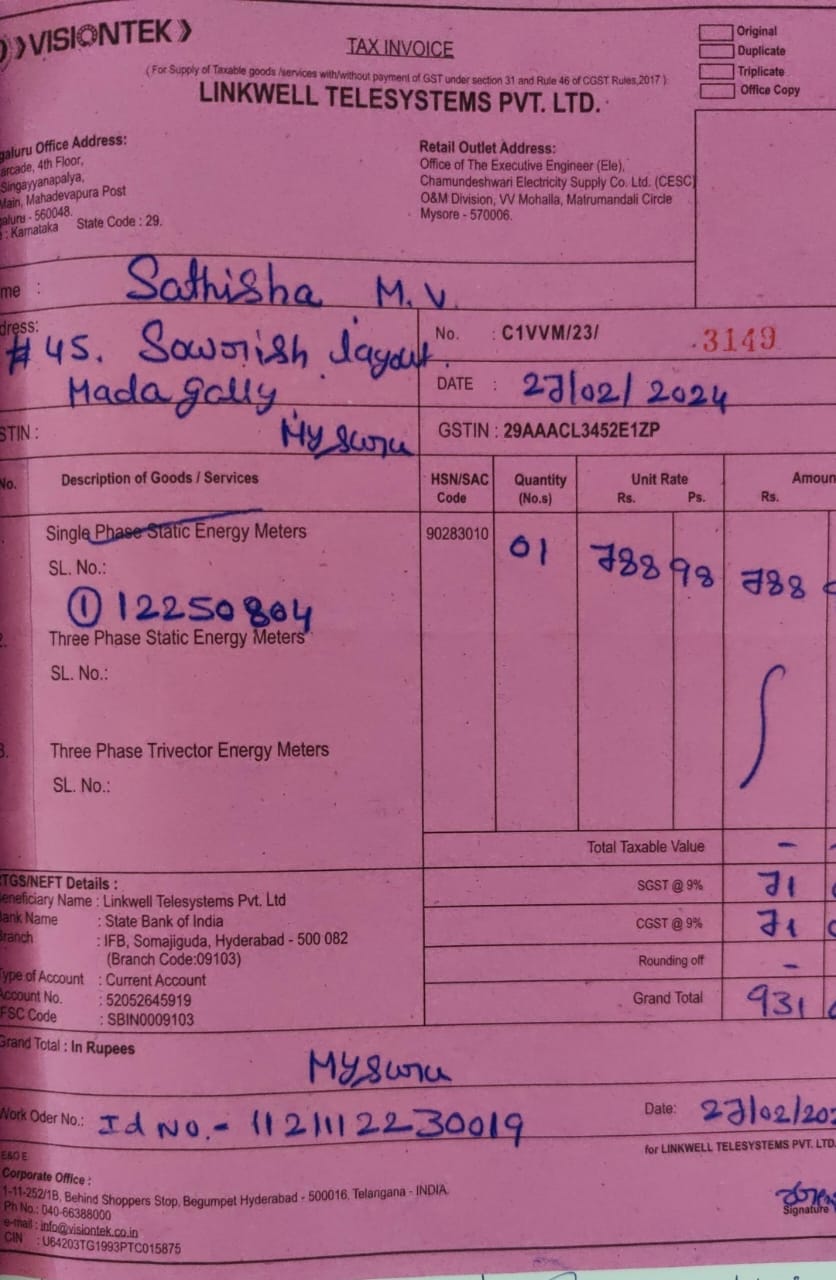 VISIONTEK
TAX INVOICE
Original
Duplicate
Triplicate
Office Copy
( For Supply of Taxable goods /services with/without payment of GST under section 31 and Rule 46 of CGST Rules,2017 )
LINKWELL TELESYSTEMS PVT. LTD.
galuru Office Address:
arcade, 4th Floor,
Singayyanapalya,
Main, Mahadevapura Post
galuru - 560048.
: Karnataka State Code : 29.
Retail Outlet Address:
Office of The Executive Engineer (Ele),
Chamundeshwari Electricity Supply Co. Ltd. (CESC)
O&M Division, VV Mohalla, Matrumandali Circle
Mysore - 570006.
me : Sathisha M.V
dress: #45. layout
Madagally
Mysuru
STIN :
No. : C1VVM/23/ 3149
DATE : 27/02/2024
GSTIN : 29AAACL3452E1ZP
No. Description of Goods / Services HSN/SAC Code Quantity (No.s) Unit Rate Rs. Ps. Amoun Rs.
Single Phase Static Energy Meters 90283010 01 788 98 788
SL. No.:
① 12250804
2. Three Phase Static Energy Meters
SL. No.:
3. Three Phase Trivector Energy Meters
SL. No.:
Total Taxable Value -
SGST @ 9% 71
CGST @ 9% 71
Rounding off -
Grand Total 931
RTGS/NEFT Details :
Beneficiary Name : Linkwell Telesystems Pvt. Ltd
Bank Name : State Bank of India
Branch : IFB, Somajiguda, Hyderabad - 500 082
(Branch Code:09103)
Type of Account : Current Account
Account No. : 52052645919
IFSC Code : SBIN0009103
Grand Total : In Rupees
Mysuru
Work Oder No.: Id No.- 1121112230019 Date: 27/02/202
for LINKWELL TELESYSTEMS PVT. LTD.
E&O E
Corporate Office :
1-11-252/1B, Behind Shoppers Stop, Begumpet Hyderabad - 500016. Telangana - INDIA.
Ph No.: 040-66388000
e-mail : info@visiontek.co.in
CIN : U64203TG1993PTC015875
Signature